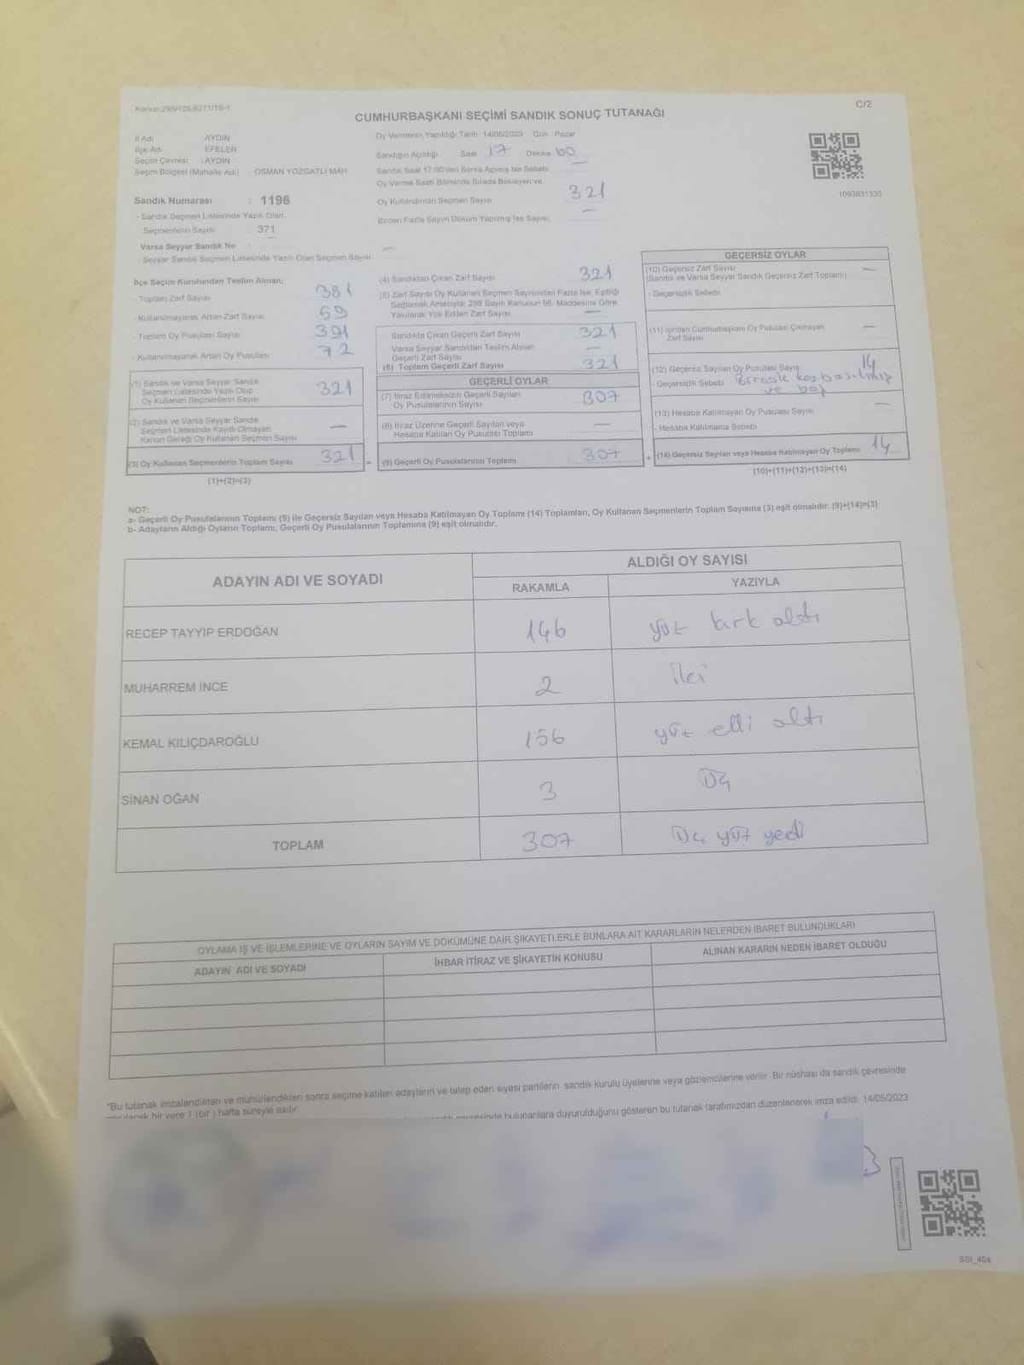 C/2
CUMHURBAŞKANI SEÇİMİ SANDIK SONUÇ TUTANAĞI
İl Adı : AYDIN
İlçe Adı : EFELER
Seçim Çevresi : AYDIN
Seçim Bölgesi (Mahalle Adı) : OSMAN YOZGATLI MAH.
Oy Vermenin Yapıldığı Tarih: 14/05/2023 Gün : Pazar
Sandığın Açıldığı Saat 17 Dakika 00
Oy Kullandırılan Seçmen Sayısı 321
Sandık Numarası : 1196
- Sandık Seçmen Listesinde Yazılı Olan
Seçmenlerin Sayısı 371
Varsa Seyyar Sandık No —
- Seyyar Sandık Seçmen Listesinde Yazılı Olan Seçmen Sayısı
İlçe Seçim Kurulundan Teslim Alınan;
- Toplam Zarf Sayısı 381
- Kullanılmayarak Artan Zarf Sayısı 59
- Toplam Oy Pusulası Sayısı 391
- Kullanılmayarak Artan Oy Pusulası 72
(1) Sandık ve Varsa Seyyar Sandık
Seçmen Listesinde Yazılı Olup
Oy Kullanan Seçmenlerin Sayısı 321
(2) Sandık ve Varsa Seyyar Sandık
Seçmen Listesinde Kayıtlı Olmayan
Kanun Gereği Oy Kullanan Seçmen Sayısı —
(3) Oy Kullanan Seçmenlerin Toplam Sayısı 321
(1)+(2)=(3)
(4) Sandıktan Çıkan Zarf Sayısı 321
(5) Zarf Sayısı Oy Kullanan Seçmen Sayısından Fazla İse, Eşitliği
Sağlamak Amacıyla; 298 Sayılı Kanunun 98. Maddesine Göre
Yakılarak Yok Edilen Zarf Sayısı —
Sandıkta Çıkan Geçerli Zarf Sayısı 321
Varsa Seyyar Sandıktan Teslim Alınan
Geçerli Zarf Sayısı —
(6) Toplam Geçerli Zarf Sayısı 321
GEÇERLİ OYLAR
(7) İtiraz Edilmeksizin Geçerli Sayılan
Oy Pusulalarının Sayısı 307
(8) İtiraz Üzerine Geçerli Sayılan veya
Hesaba Katılan Oy Pusulası Toplamı —
(9) Geçerli Oy Pusulalarının Toplamı 307
GEÇERSİZ OYLAR
(10) Geçersiz Zarf Sayısı —
(Sandık ve Varsa Seyyar Sandık Geçersiz Zarf Toplamı)
- Geçersizlik Sebebi
(11) İçinden Cumhurbaşkanı Oy Pusulası Çıkmayan
Zarf Sayısı —
(12) Geçersiz Sayılan Oy Pusulası Sayısı 14
- Geçersizlik Sebebi
ve boş
(13) Hesaba Katılmayan Oy Pusulası Sayısı —
- Hesaba Katılmama Sebebi
(14) Geçersiz Sayılan veya Hesaba Katılmayan Oy Toplamı 14
(10)+(11)+(12)+(13)=(14)
NOT:
a- Geçerli Oy Pusulalarının Toplamı (9) ile Geçersiz Sayılan veya Hesaba Katılmayan Oy Toplamı (14) Toplamları, Oy Kullanan Seçmenlerin Toplam Sayısına (3) eşit olmalıdır. (9)+(14)=(3)
b- Adayların Aldığı Oyların Toplamı, Geçerli Oy Pusulalarının Toplamına (9) eşit olmalıdır.
ADAYIN ADI VE SOYADI
ALDIĞI OY SAYISI
RAKAMLA YAZIYLA
RECEP TAYYİP ERDOĞAN 146 yüz kırk altı
MUHARREM İNCE 2 iki
KEMAL KILIÇDAROĞLU 156 yüz elli altı
SİNAN OĞAN 3 üç
TOPLAM 307 üç yüz yedi
OYLAMA İŞ VE İŞLEMLERİNE VE OYLARIN SAYIM VE DÖKÜMÜNE DAİR ŞİKAYETLERLE BUNLARA AİT KARARLARIN NELERDEN İBARET BULUNDUKLARI
ADAYIN ADI VE SOYADI İHBAR İTİRAZ VE ŞİKAYETİN KONUSU ALINAN KARARIN NEDEN İBARET OLDUĞU
*Bu tutanak imzalandıktan ve mühürlendikten sonra seçime katılan adayların ve talep eden siyasi partilerin sandık kurulu üyelerine veya gözlemcilerine verilir. Bir nüshası da sandık çevresinde
bulunanlara duyurulduğunu gösteren bu tutanak tarafımızdan düzenlenerek imza edildi. 14/05/2023